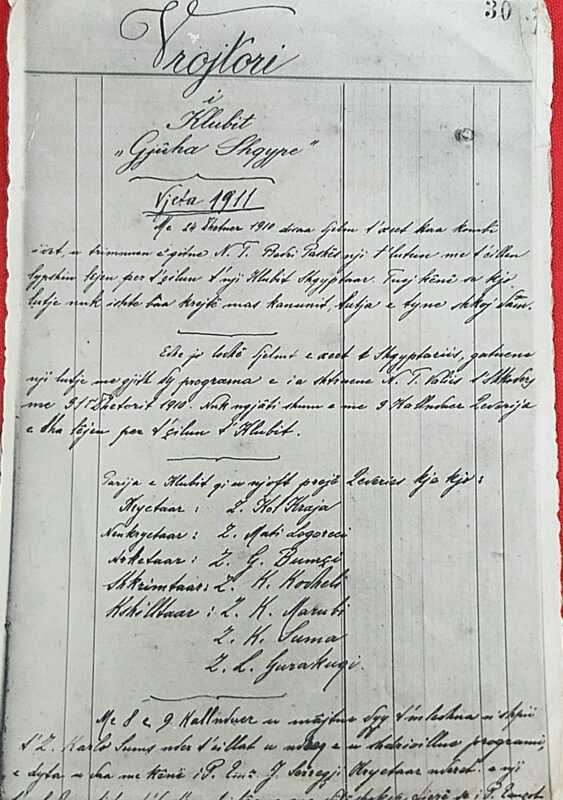 30
Vrojtori
i
Klubit
„Gjûha Shqype"
Vjeta 1911
Me 24 Shtner 1910 disa t'xect kaa kombi
u trimnuen e i gitne N. T. Bedri Pashës nji t'lutun me t'cillen
lypshin lejen per t'çilun t'nji Klubit Shqyptaar. Tuej kênê se kjo
lutje nuk ishte bâa krejtë mas kanunit, lutja e tyne shkoj dâm.
Edhe jo loshë e xect t Shqyptaciis, gatuene
nji lutje me gjith dy programa e ia shtruene N. T. Valiis t'Shkoders
me 31 Dhetorit 1910. Nuk ngjâti shum e me 3 Kallnduer Qeverija
e dha lejen per t'çilun t'Klubit.
Parija e Klubit qi u njoft prejë Qeveries kje kjo:
Kryetaar: Z. Kol Kraja
Nenkryetaar: Z. Mati Logoreci
Arketaar: Z. G. Bumçi
Shkrimtaar: Z. K. Kodheli
Kshilltaar: Z. K. Marubi
Z. H. Suma
Z. L. Gurakuqi.
Me 8 e 9 Kallnduer u mbajtne dyy t'mledhna n'shpii
t'Z. Karlo Sums nder t'cillat u ndreq e u shdrivillue programi,
e dyta u dha me kênê i P. Emz. J. Serreqji Kryetaar nderet. e nji